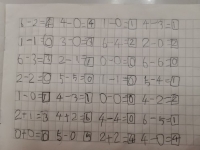 4-0=4 1-0=1
1-1=0 6-4=2
6-3=3 2-1=1 0-0=0 6-6=0
2-2=0 5-5=0 1-1=0 5-4=1
1-0=1 4-3=1 0-0=0 4-2=2
2+1=3 4+2=6 4-4=0 6-5=1
0+0=0 5-0=5 2+2=4 4-0=4